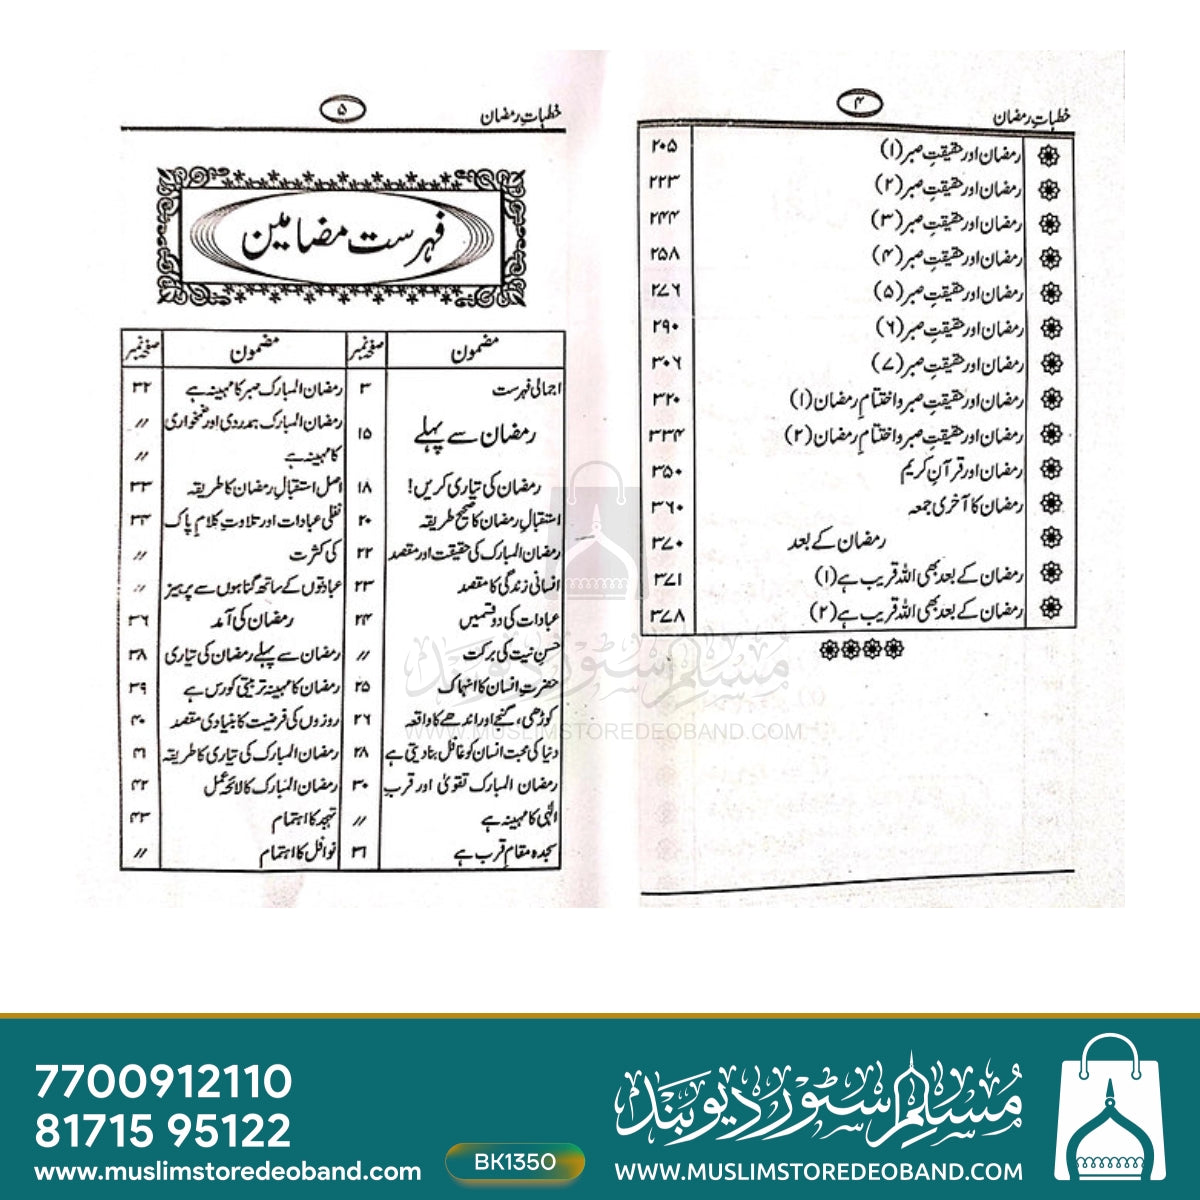 خطباتِ رمضان
۴
رمضان اور حقیقتِ صبر (۱) ۲۰۵
رمضان اور حقیقتِ صبر (۲) ۲۲۳
رمضان اور حقیقتِ صبر (۳) ۲۴۴
رمضان اور حقیقتِ صبر (۴) ۲۵۸
رمضان اور حقیقتِ صبر (۵) ۲۷۶
رمضان اور حقیقتِ صبر (۶) ۲۹۰
رمضان اور حقیقتِ صبر (۷) ۳۰۶
رمضان اور حقیقتِ صبر و اختتامِ رمضان (۱) ۳۲۰
رمضان اور حقیقتِ صبر و اختتامِ رمضان (۲) ۳۳۴
رمضان اور قرآنِ کریم ۳۵۰
رمضان کا آخری جمعہ ۳۶۰
رمضان کے بعد ۳۷۰
رمضان کے بعد بھی اللہ قریب ہے (۱) ۳۷۱
رمضان کے بعد بھی اللہ قریب ہے (۲) ۳۷۸
خطباتِ رمضان
۵
فہرست مضامین
مضمون صفحہ نمبر
اجمالی فہرست ۳
رمضان سے پہلے ۱۵
رمضان کی تیاری کریں! ۱۸
استقبالِ رمضان کا صحیح طریقہ ۲۰
رمضان المبارک کی حقیقت اور مقصد ۲۲
انسانی زندگی کا مقصد ۲۳
عبادات کی دو قسمیں ۲۴
حسنِ نیت کی برکت //
حضرتِ انسان کا انہماک ۲۵
کوڑھی، گنجے اور اندھے کا واقعہ ۲۶
دنیا کی محبت انسان کو غافل بنا دیتی ہے ۲۸
رمضان المبارک تقویٰ اور قربِ ۳۰
الٰہی کا مہینہ ہے //
سجدہ مقامِ قرب ہے ۳۱
مضمون صفحہ نمبر
رمضان المبارک صبر کا مہینہ ہے ۳۲
رمضان المبارک ہمدردی اور غمخواری //
کا مہینہ ہے //
اصل استقبالِ رمضان کا طریقہ ۳۳
نفلی عبادات اور تلاوتِ کلامِ پاک ۳۴
کی کثرت //
عبادتوں کے ساتھ گناہوں سے پرہیز //
رمضان کی آمد ۳۶
رمضان سے پہلے رمضان کی تیاری ۳۸
رمضان کا مہینہ تربیتی کورس ہے ۳۹
روزوں کی فرضیت کا بنیادی مقصد ۴۰
رمضان المبارک کی تیاری کا طریقہ ۴۱
رمضان المبارک کا لائحہ عمل ۴۲
تہجد کا اہتمام ۴۳
نوافل کا اہتمام //
مسلم سٹور دیوبند
WWW.MUSLIMSTOREDEOBAND.COM
7700912110
81715 95122
www.muslimstoredeoband.com
BK1350
مسلم سٹور دیوبند
WWW.MUSLIMSTOREDEOBAND.COM